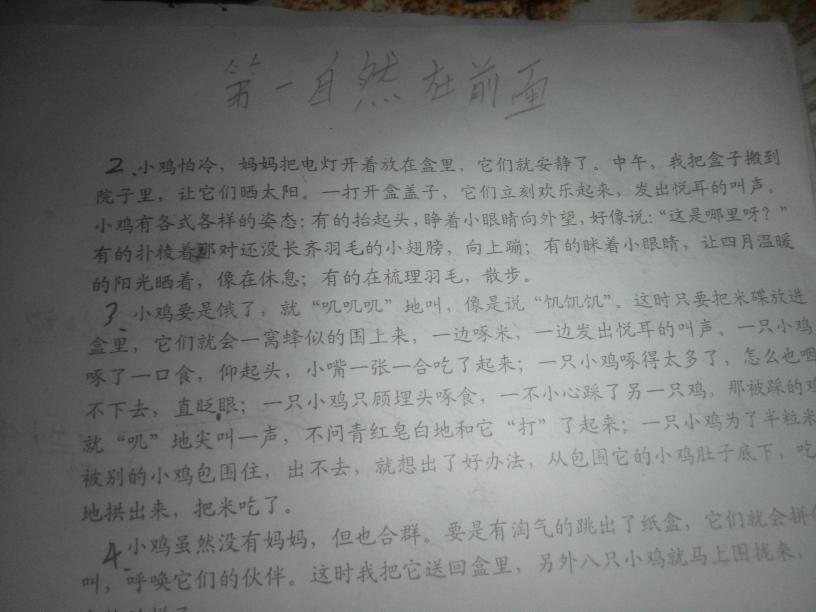 第一自然在前面
2、小鸡怕冷，妈妈把电灯开着放在盒里，它们就安静了。中午，我把盒子搬到
院子里，让它们晒太阳。一打开盒盖子，它们立刻欢乐起来，发出悦耳的叫声。
小鸡有各式各样的姿态：有的抬起头，睁着小眼睛向外望，好像说：“这是哪里呀？”
有的扑棱着那对还没长齐羽毛的小翅膀，向上蹦；有的眯着小眼睛，让四月温暖
的阳光晒着，像在休息；有的在梳理羽毛，散步。
3、小鸡要是饿了，就“叽叽叽”地叫，像是说“饥饥饥”。这时只要把米碟放进
盒里，它们就会一窝蜂似的围上来，一边啄米，一边发出悦耳的叫声。一只小鸡
啄了一口食，仰起头，小嘴一张一合吃了起来；一只小鸡啄得太多了，怎么也咽
不下去，直眨眼；一只小鸡只顾埋头啄食，一不小心踩了另一只鸡，那被踩的鸡
就“叽”地尖叫一声，不问青红皂白地和它“打”了起来；一只小鸡为了半粒米
被别的小鸡包围住，出不去，就想出了好办法，从包围它的小鸡肚子底下，吃
地拱出来，把米吃了。
4、小鸡虽然没有妈妈，但也合群。要是有淘气的跳出了纸盒，它们就会拼
叫，呼唤它们的伙伴。这时我把它送回盒里，另外八只小鸡就马上围拢来，